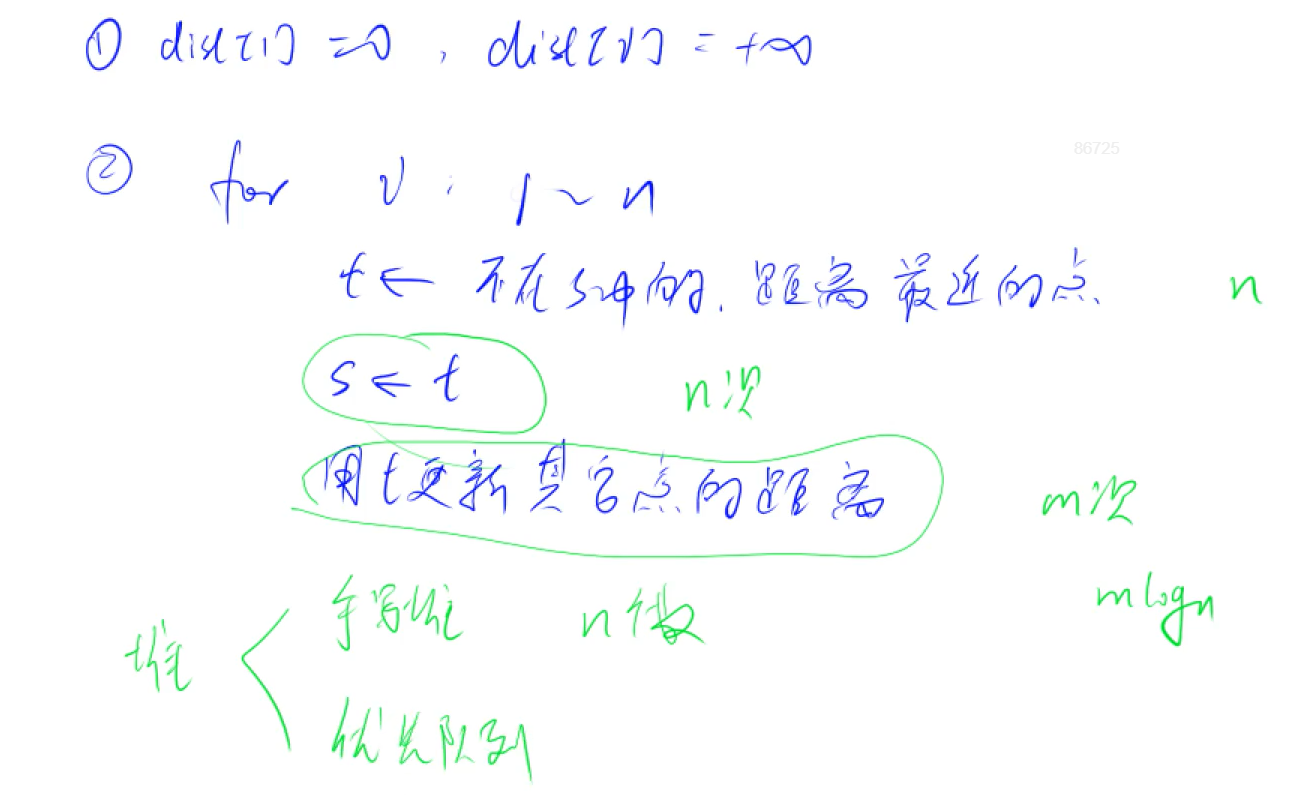 ① dist[1] = 0, dist[v] = +∞
86725
② for v: 1 ~ n
t ← 不在s中的, 距离最近的点. n
s ← t n次
用t更新其它点的距离 m次
mlogn
手写堆 n个数
堆
优先队列